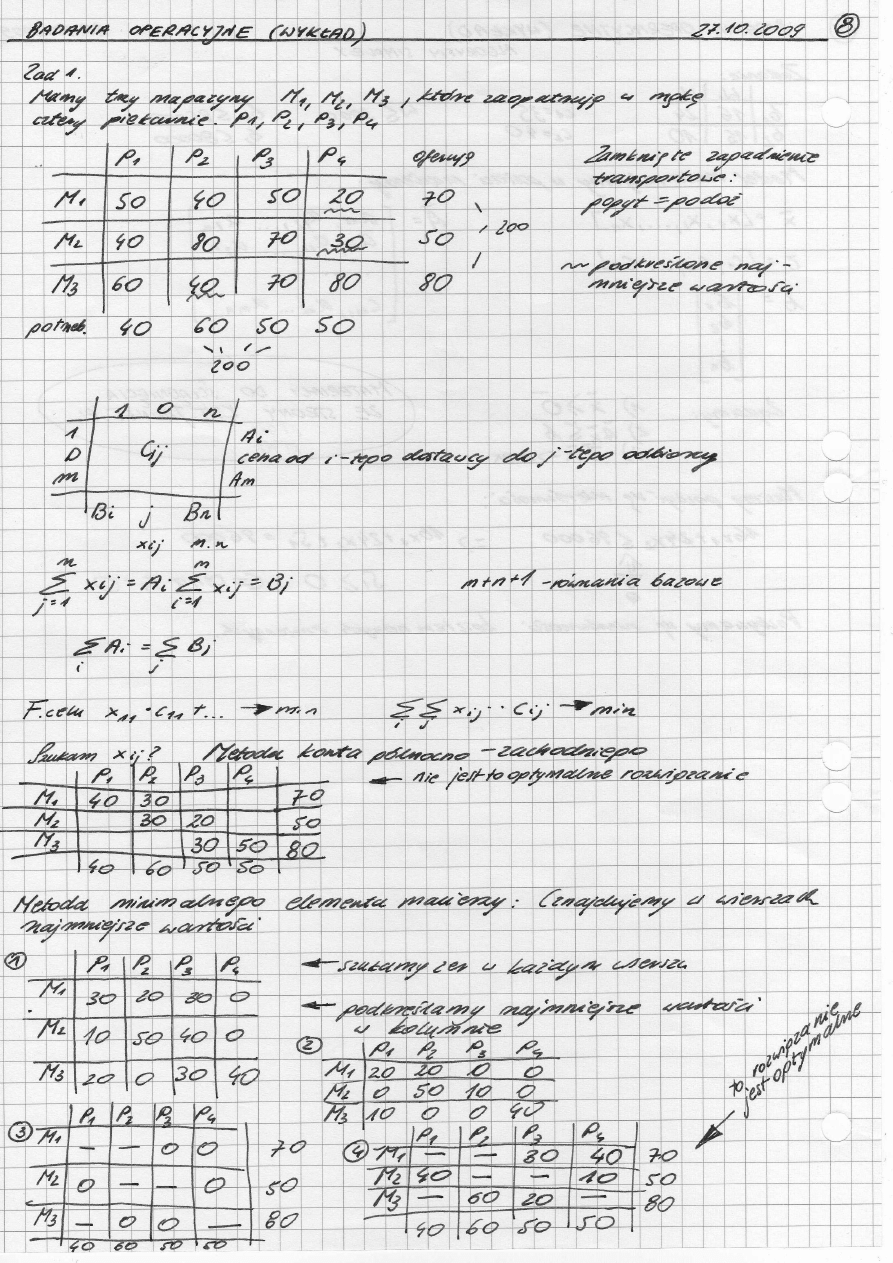 BADANIA OPERACYJNE (WYKŁAD) 27.10.2009 8
Zad 1.
Mamy trzy magazyny M1, M2, M3, które zaopatrują w mąkę
cztery piekarnie: P1, P2, P3, P4
P1 P2 P3 P4 oferują
M1 50 40 50 20 70
M2 40 80 70 30 50
M3 60 40 70 80 80
potrzeb. 40 60 50 50
200
200
Zamknięte zagadnienie
transportowe:
popyt = podaż
~ podkreślone naj-
mniejsze wartości
1 O n
1 Ai
D Cij cena od i-tego dostawcy do j-tego odbiorcy
m Am
Bi j Bn
xij m.n
n∑j=1 xij = Ai m∑i=1 xij = Bj m+n+1 - równania bazowe
∑i Ai = ∑j Bj
F. celu x11 · c11 + ... → min ∑i ∑j xij · Cij → min
Szukam xij? Metoda konta północno - zachodniego
P1 P2 P3 P4 ← nie jest to optymalne rozwiązanie
M1 40 30 70
M2 30 20 50
M3 30 50 80
40 60 50 50
Metoda minimalnego elementu macierzy: (znajdujemy w wierszach
najmniejsze wartości
1 P1 P2 P3 P4 ← szukamy zer w każdym wierszu
M1 30 20 30 0 ← podkreślamy najmniejsze wartości
w kolumnie
M2 10 50 40 0
M3 20 0 30 40
2 P1 P2 P3 P4
M1 20 20 0 0
M2 0 50 10 0
M3 10 0 0 40
to rozwiązanie
jest optymalne
3 P1 P2 P3 P4
M1 — — 0 0 70
M2 0 — — 0 50
M3 — 0 0 — 80
40 60 50 50
4 P1 P2 P3 P4
M1 — — 30 40 70
M2 40 — — 10 50
M3 — 60 20 — 80
40 60 50 50